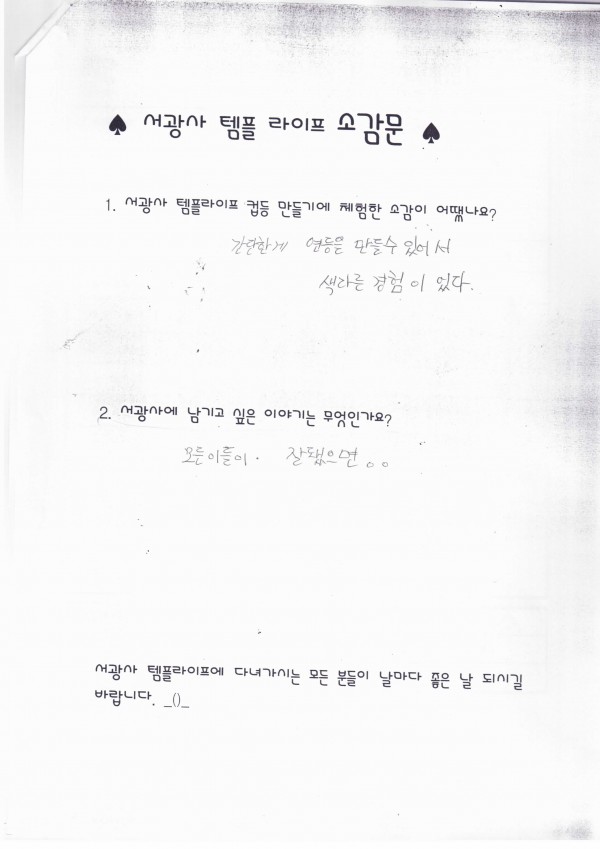 ♠ 서광사 템플 라이프 소감문 ♠
1. 서광사 템플라이프 컵등 만들기에 체험한 소감이 어땠나요?
간단한게 연등을 만들수 있어서
색다른 경험이 었다.
2. 서광사에 남기고 싶은 이야기는 무엇인가요?
모든이들이. 잘됐으면。。
서광사 템플라이프에 다녀가시는 모든 분들이 날마다 좋은 날 되시길
바랍니다. _()_